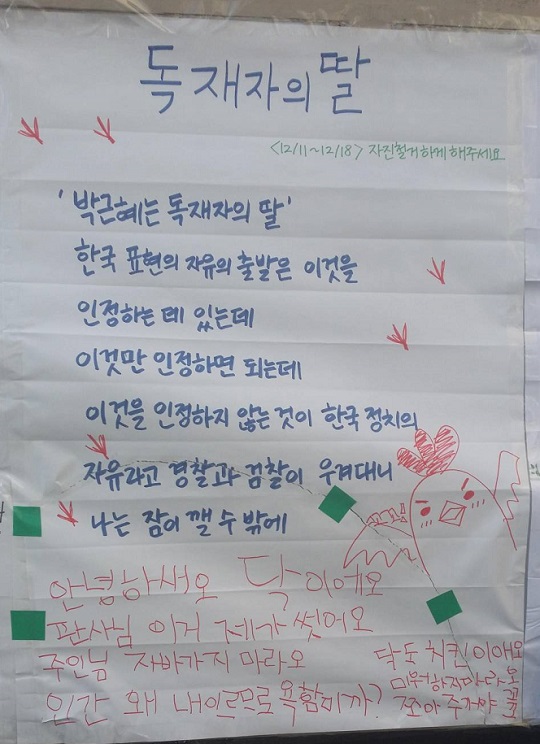 독재자의 딸
<12/11~12/18> 자진철거하게 해주세요
'박근혜는 독재자의 딸'
한국 표현의 자유의 출발은 이것을
인정하는 데 있는데
이것만 인정하면 되는데
이것을 인정하지 않는 것이 한국 정치의
자유라고 경찰과 검찰이 우겨대니
나는 잠이 깰 수 밖에
꼬꼬댁
안녕하새오 닥이에오
판사님 이거 제가 썻어오
주인님 자바가지 마라오
인간 왜 내이르므로 욕함미까?
닥도 치킨이야오
미워하지마라오
쪼아 주거야